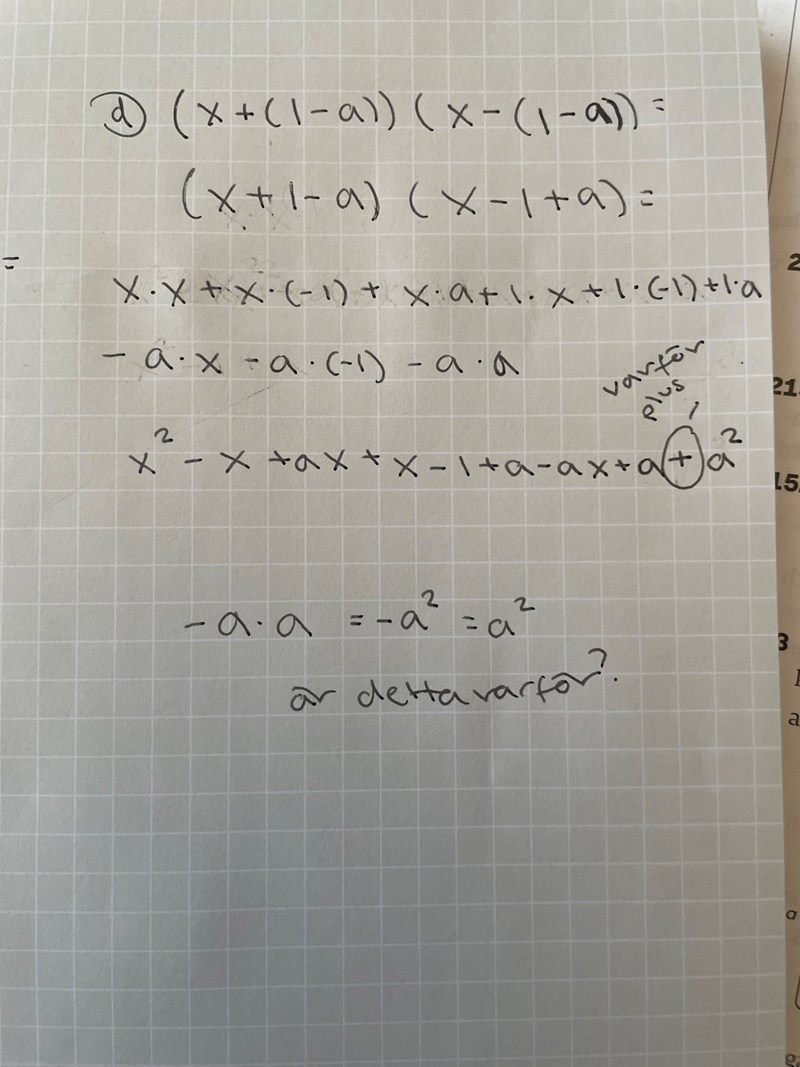 d) (x+(1-a)) (x-(1-a)) =
(x+1-a) (x-1+a) =
=
x·x + x·(-1) + x·a + 1·x + 1·(-1) + 1·a
- a·x - a·(-1) - a·a
varför
plus
x² - x + ax + x - 1 + a - ax + a + a²
- a·a = -a² = a²
är detta varför?
2
21.
15.
3
a
a
ga